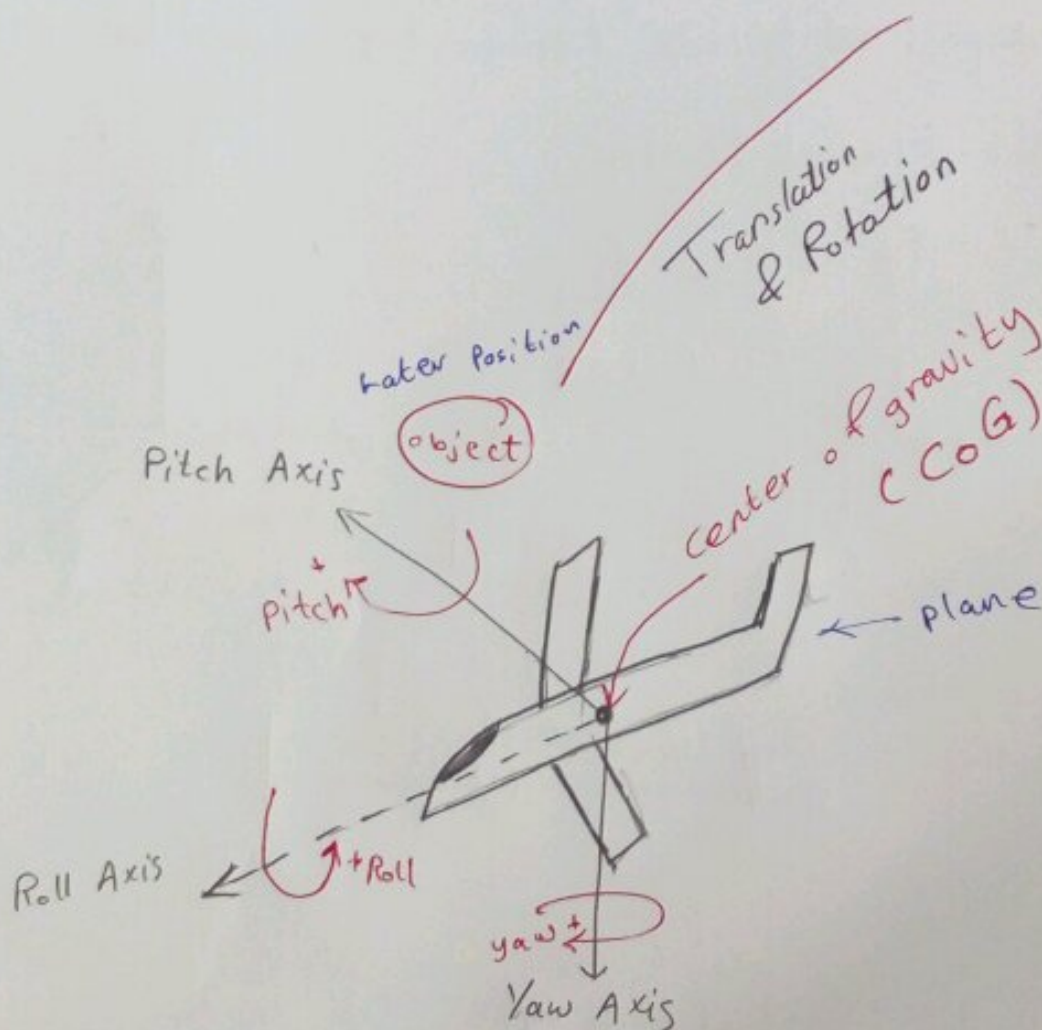 Translation
& Rotation
Later Position
object
center of gravity
(CoG)
Pitch Axis
+
pitch
plane
Roll Axis
+Roll
yaw+
Yaw Axis